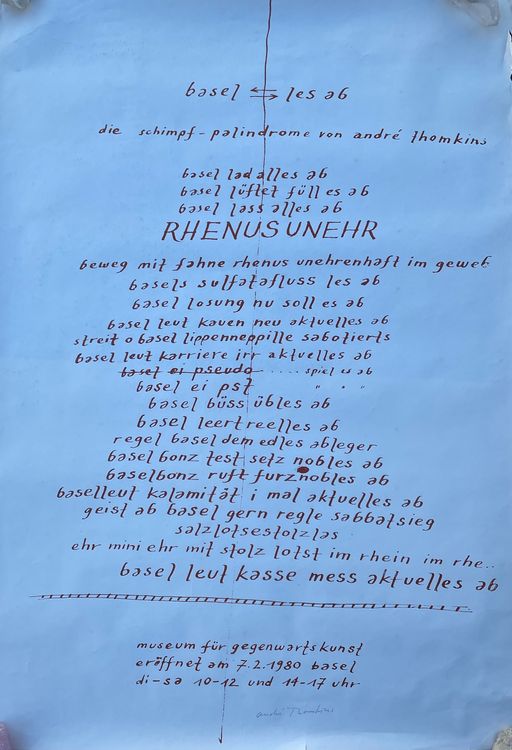 basel ⇆ les ab
die schimpf-palindrome von andré thomkins
basel lad alles ab
basel lüftet füll es ab
basel lass alles ab
RHENUS UNEHR
beweg mit fahne rhenus unehrenhaft im geweb
basels sulfatafluss les ab
basel losung nu soll es ab
basel leut kauen neu aktuelles ab
streit o basel lippenneppille sabotierts
basel leut karriere irr aktuelles ab
basel ei pseudo ..... spiel es ab
basel ei pst " " "
basel büss übles ab
basel leert reelles ab
regel basel dem edles ableger
basel bonz test setz nobles ab
baselbonz ruft furznobles ab
baselleut kalamität i mal aktuelles ab
geist ab basel gern regle sabbatsieg
salzlotsestolzlas
ehr mini ehr mit stolz lotst im rhein im rhe..
basel leut kasse mess aktuelles ab
museum für gegenwartskunst
eröffnet am 7.2.1980 basel
di-sa 10-12 und 14-17 uhr
andré Thomkins